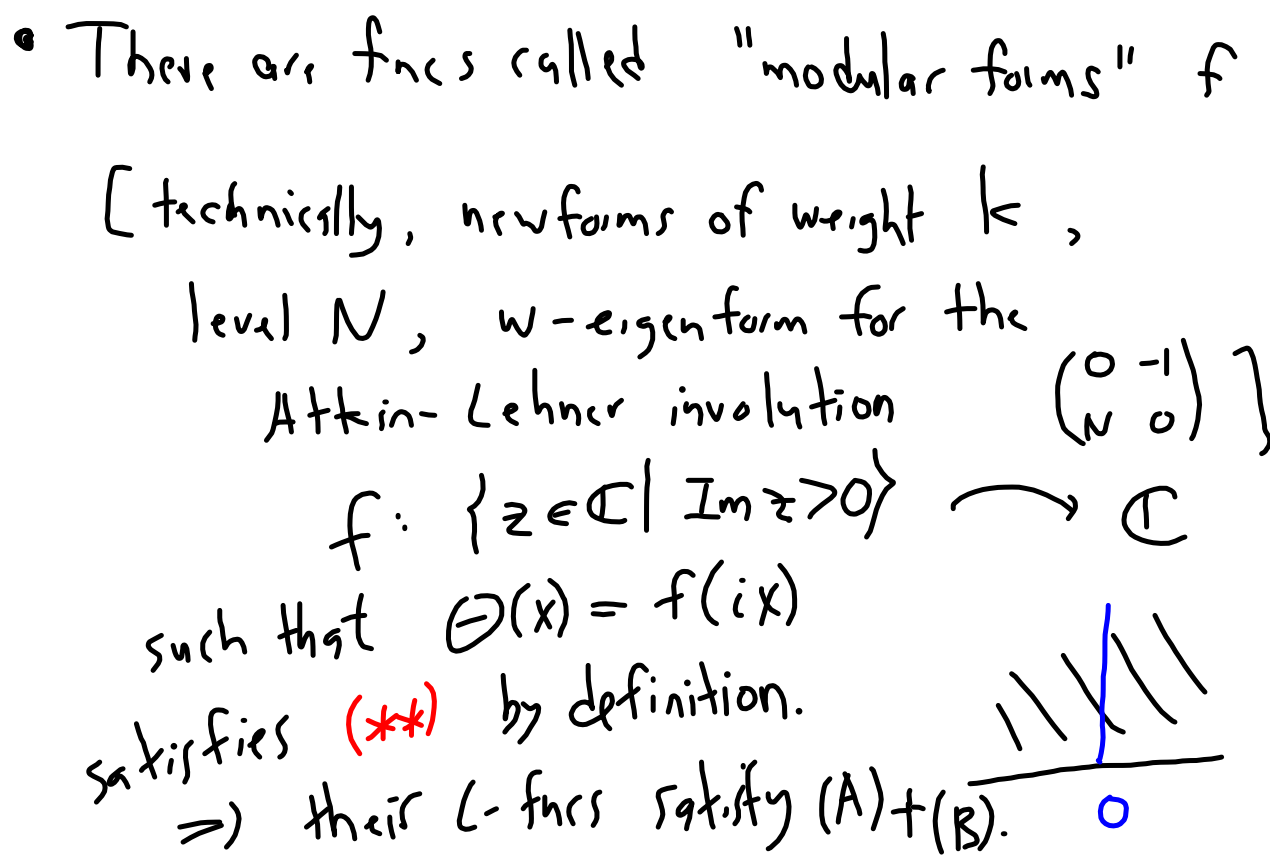 • There are fncs called "modular forms" f
[technically, newforms of weight k,
level N, w-eigenform for the
Atkin-Lehner involution (0 -1
N 0)]
f: {z ∈ ℂ | Im z > 0} → ℂ
such that Θ(x) = f(ix)
satisfies (**) by definition.
⇒ their L-fncs satisfy (A)+(B).
0